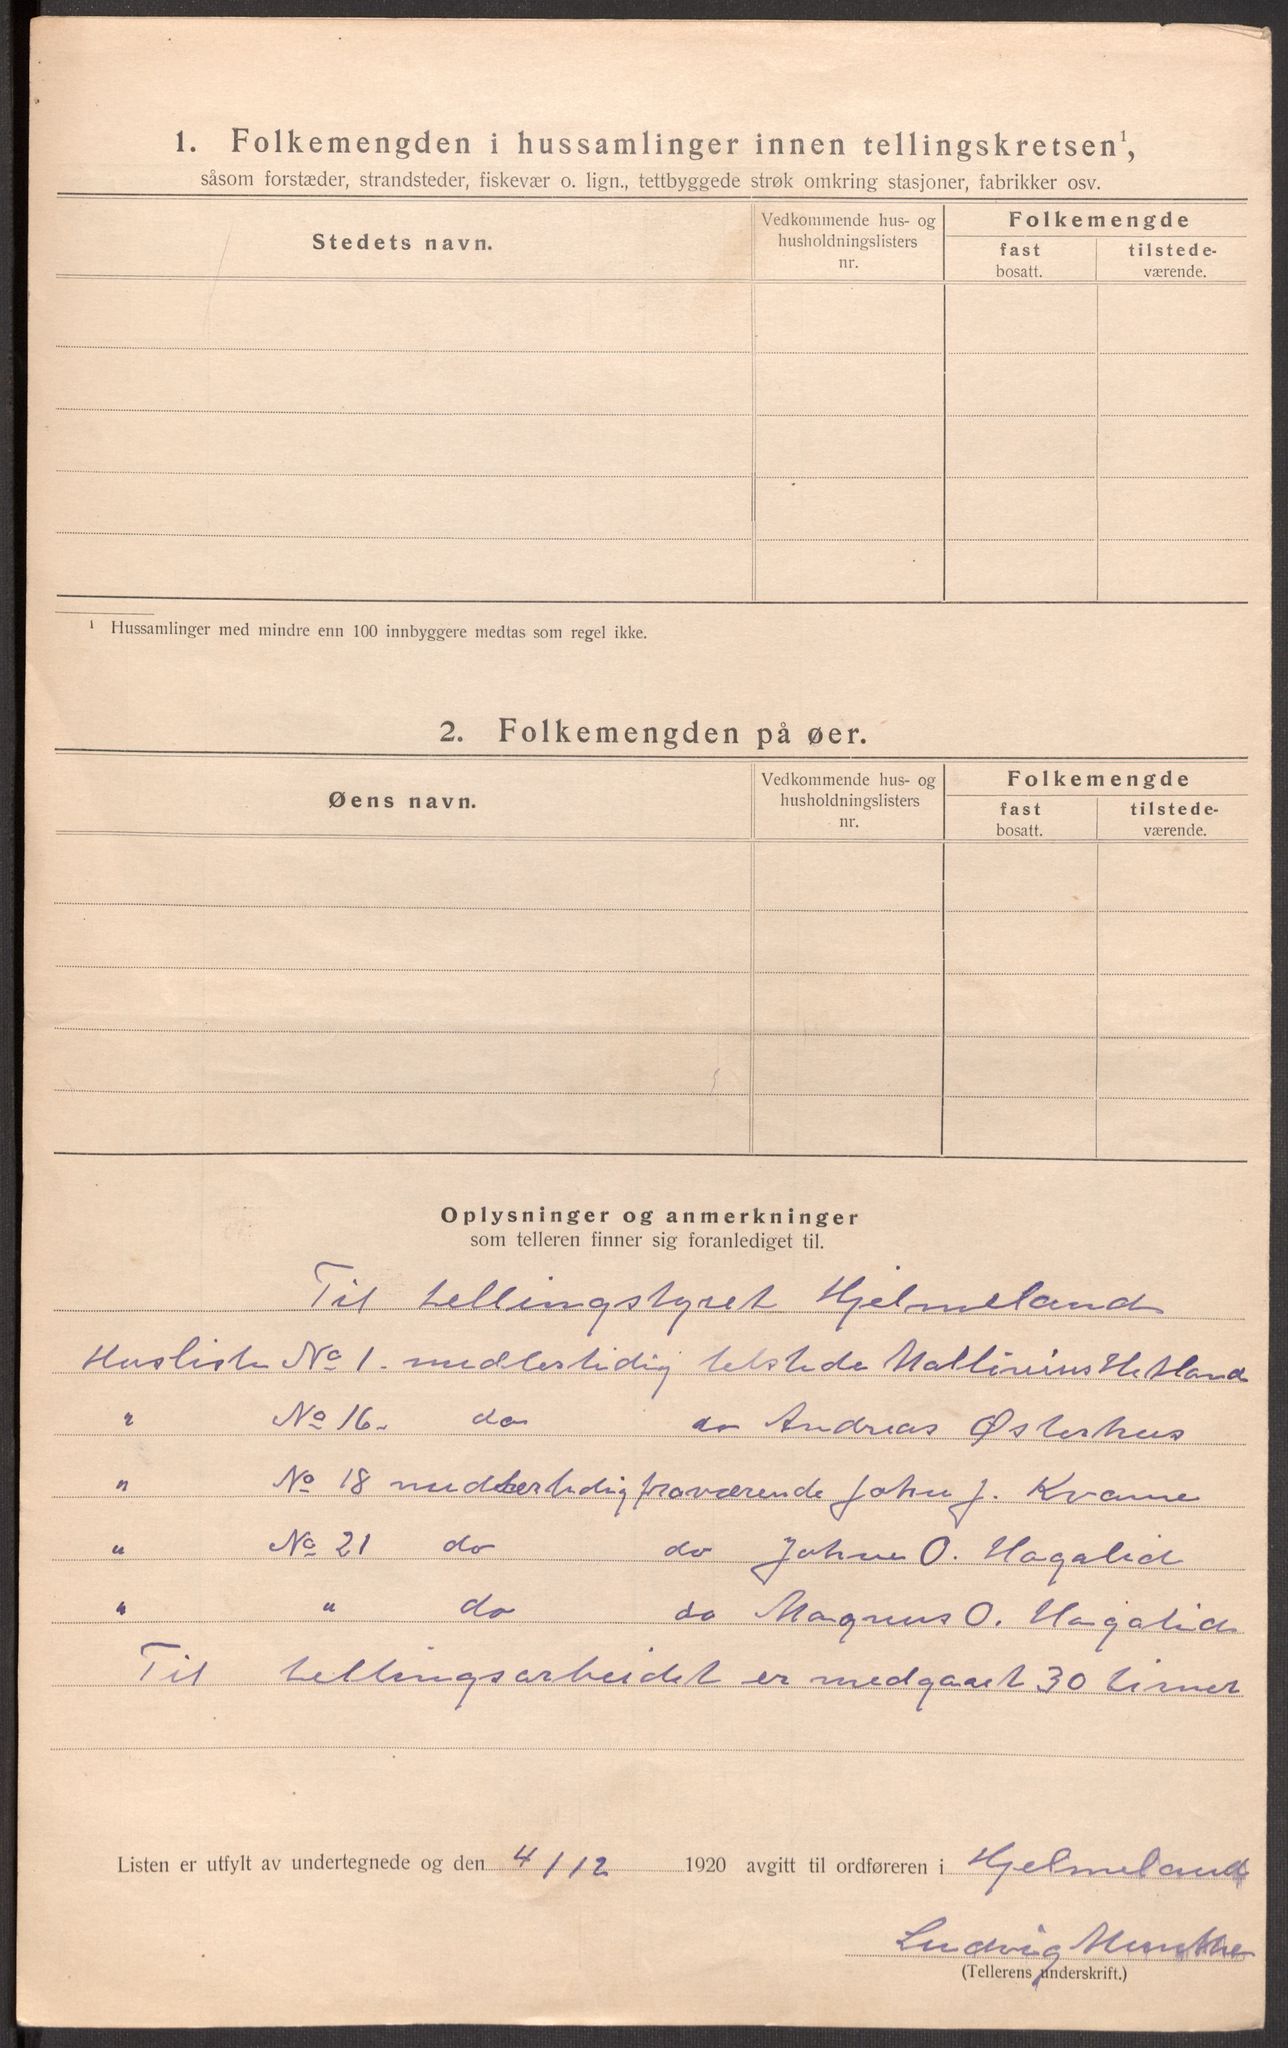 1. Folkemengden i hussamlinger innen tellingskretsen¹,
såsom forstæder, strandsteder, fiskevær o. lign., tettbyggede strøk omkring stasjoner, fabrikker osv.
Stedets navn.
Vedkommende hus- og husholdningslisters nr.
Folkemengde
fast bosatt.
tilstede-værende.
¹ Hussamlinger med mindre enn 100 innbyggere medtas som regel ikke.
2. Folkemengden på øer.
Øens navn.
Vedkommende hus- og husholdningslisters nr.
Folkemengde
fast bosatt.
tilstede-værende.
Oplysninger og anmerkninger
som telleren finner sig foranlediget til.
Til tellingstyret Hjelmeland
Husliste No 1. midlertidig telstede Hetland
" No 16. do do Andreas Østerhus
" No 18 midlertidig fraværende John J. Kvame
" No 21 do do Johne O. Hagalid
" " do do Magnus O. Hagalid
Til tellingsarbeidet er medgaaet 30 timer
Listen er utfylt av undertegnede og den 4/12 1920 avgitt til ordføreren i Hjelmeland
Ludvig Munthe
(Tellerens underskrift.)